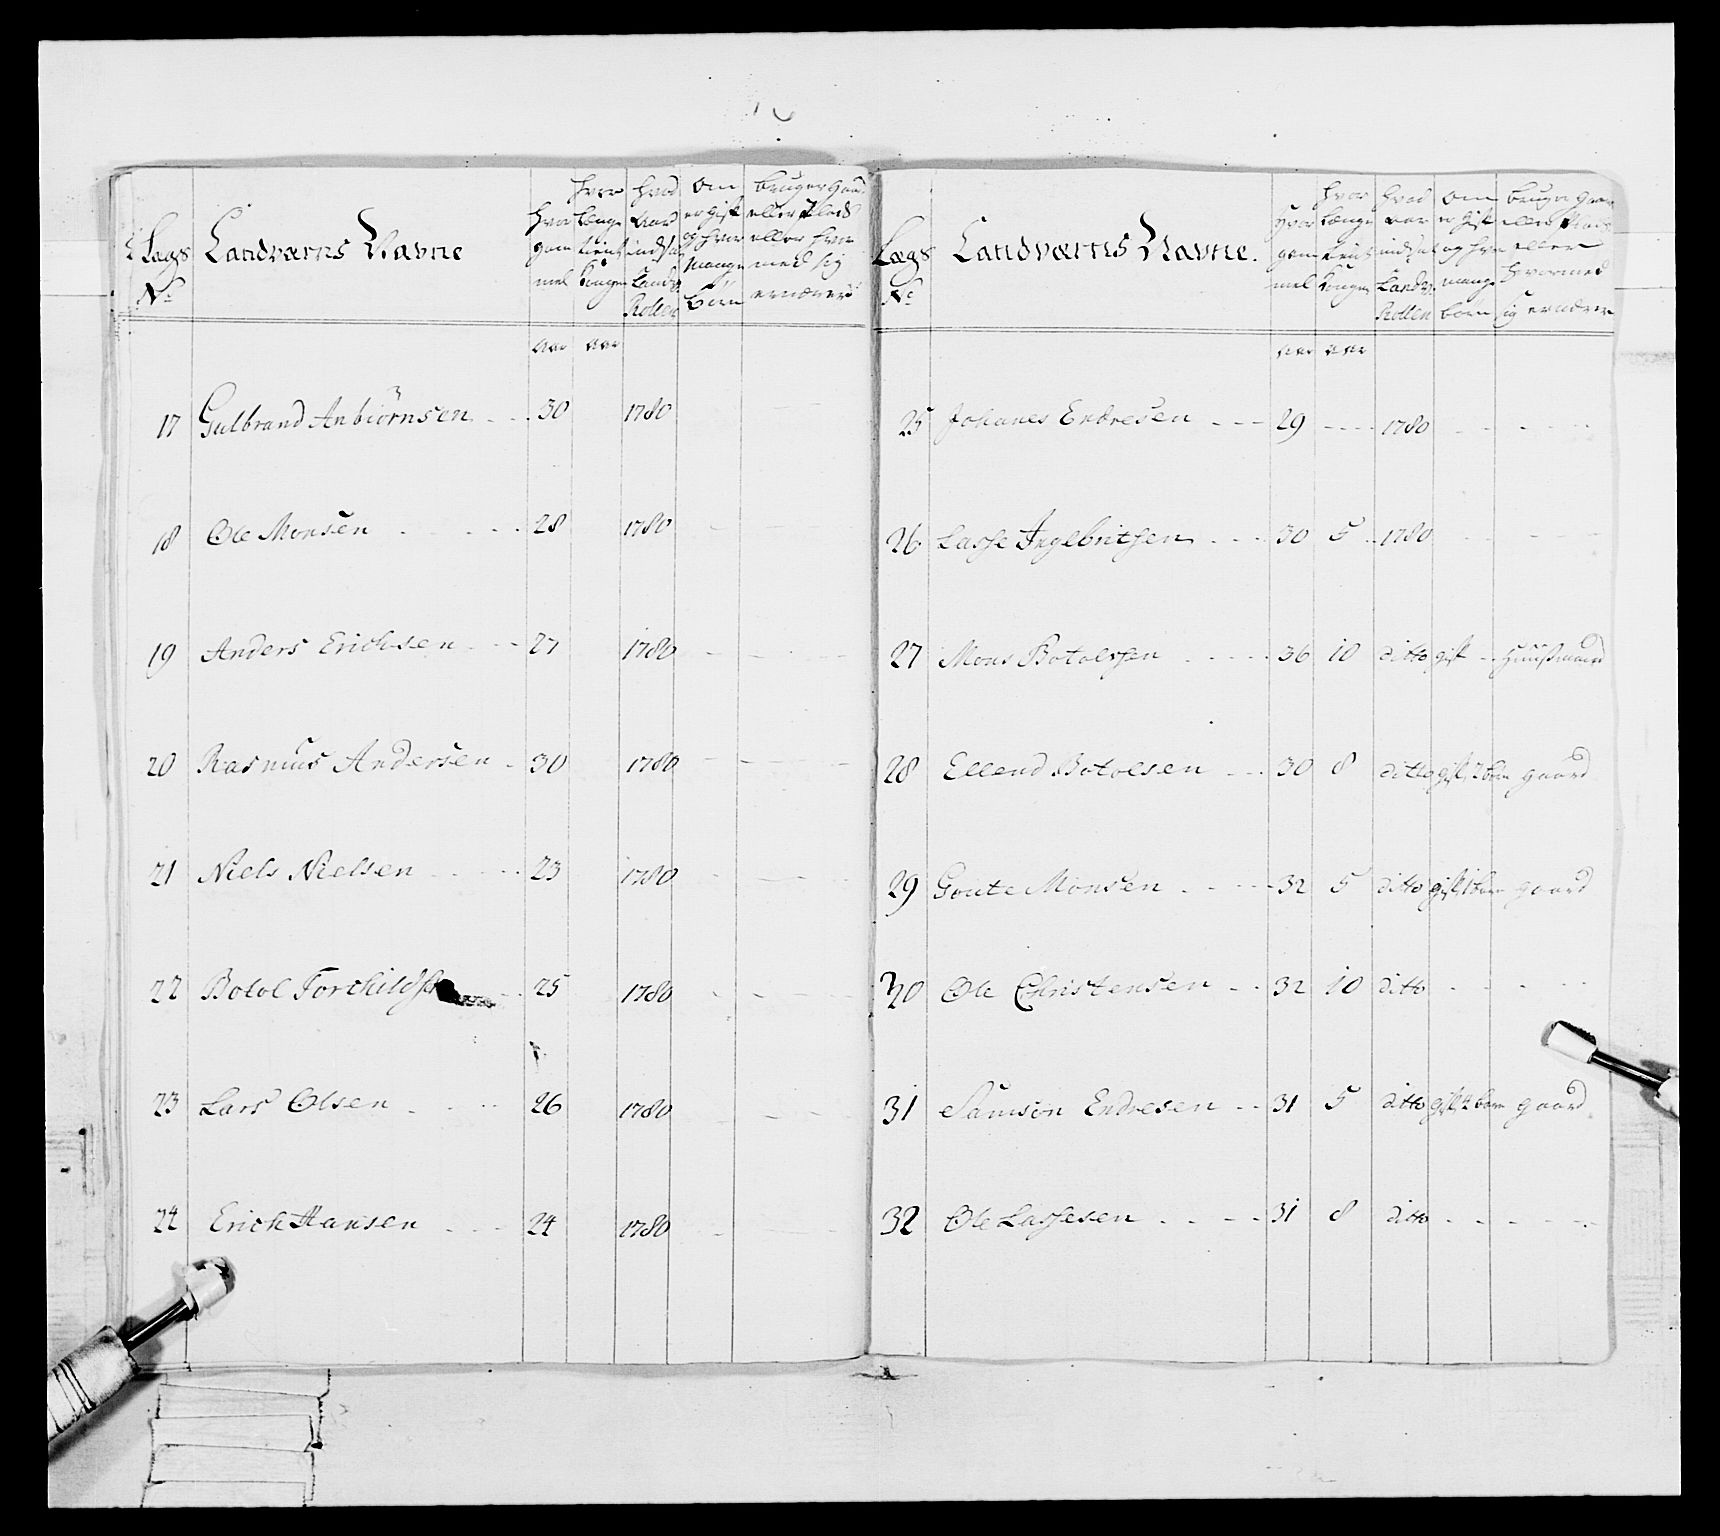 Lægs No Landværns Navne hvor gammel hvor længe tient Kongen hvad Aar indsat Landv: Rollen om er gift og hvor mange børn bruger Gaard eller Plads eller hvor med sig ernærer
aar aar
17 Gulbrand Anbiörnsen 30 1780
18 Ole Monsen 28 1780
19 Anders Erichsen 27 1780
20 Rasmus Andersen 30 1780
21 Niels Nielsen 23 1780
22 Botol Torchilds 25 1780
23 Lars Olsen 26 1780
24 Erich Hansen 24 1780
Lægs No Landværns Navne. hvor gammel hvor længe tient Kongen hvad aar indsat Landv: Rollen om er gift og hvor mange børn bruger Gaar eller Plads eller hvormed sig ernærer
aar aar
25 Johanes Endresen 29 1780
26 Lasse Ingebritsen 30 5 1780
27 Mons Botolssen 36 10 ditto gift Huusmand
28 Ellend Botolsen 30 8 ditto gift, 2 børn gaard
29 Goute Monsen 32 5 ditto gift, 1 barn gaard
30 Ole Christensen 32 10 ditto
31 Samson Endresen 31 5 ditto gift, 2 børn gaard
32 Ole Lassesen 31 8 ditto